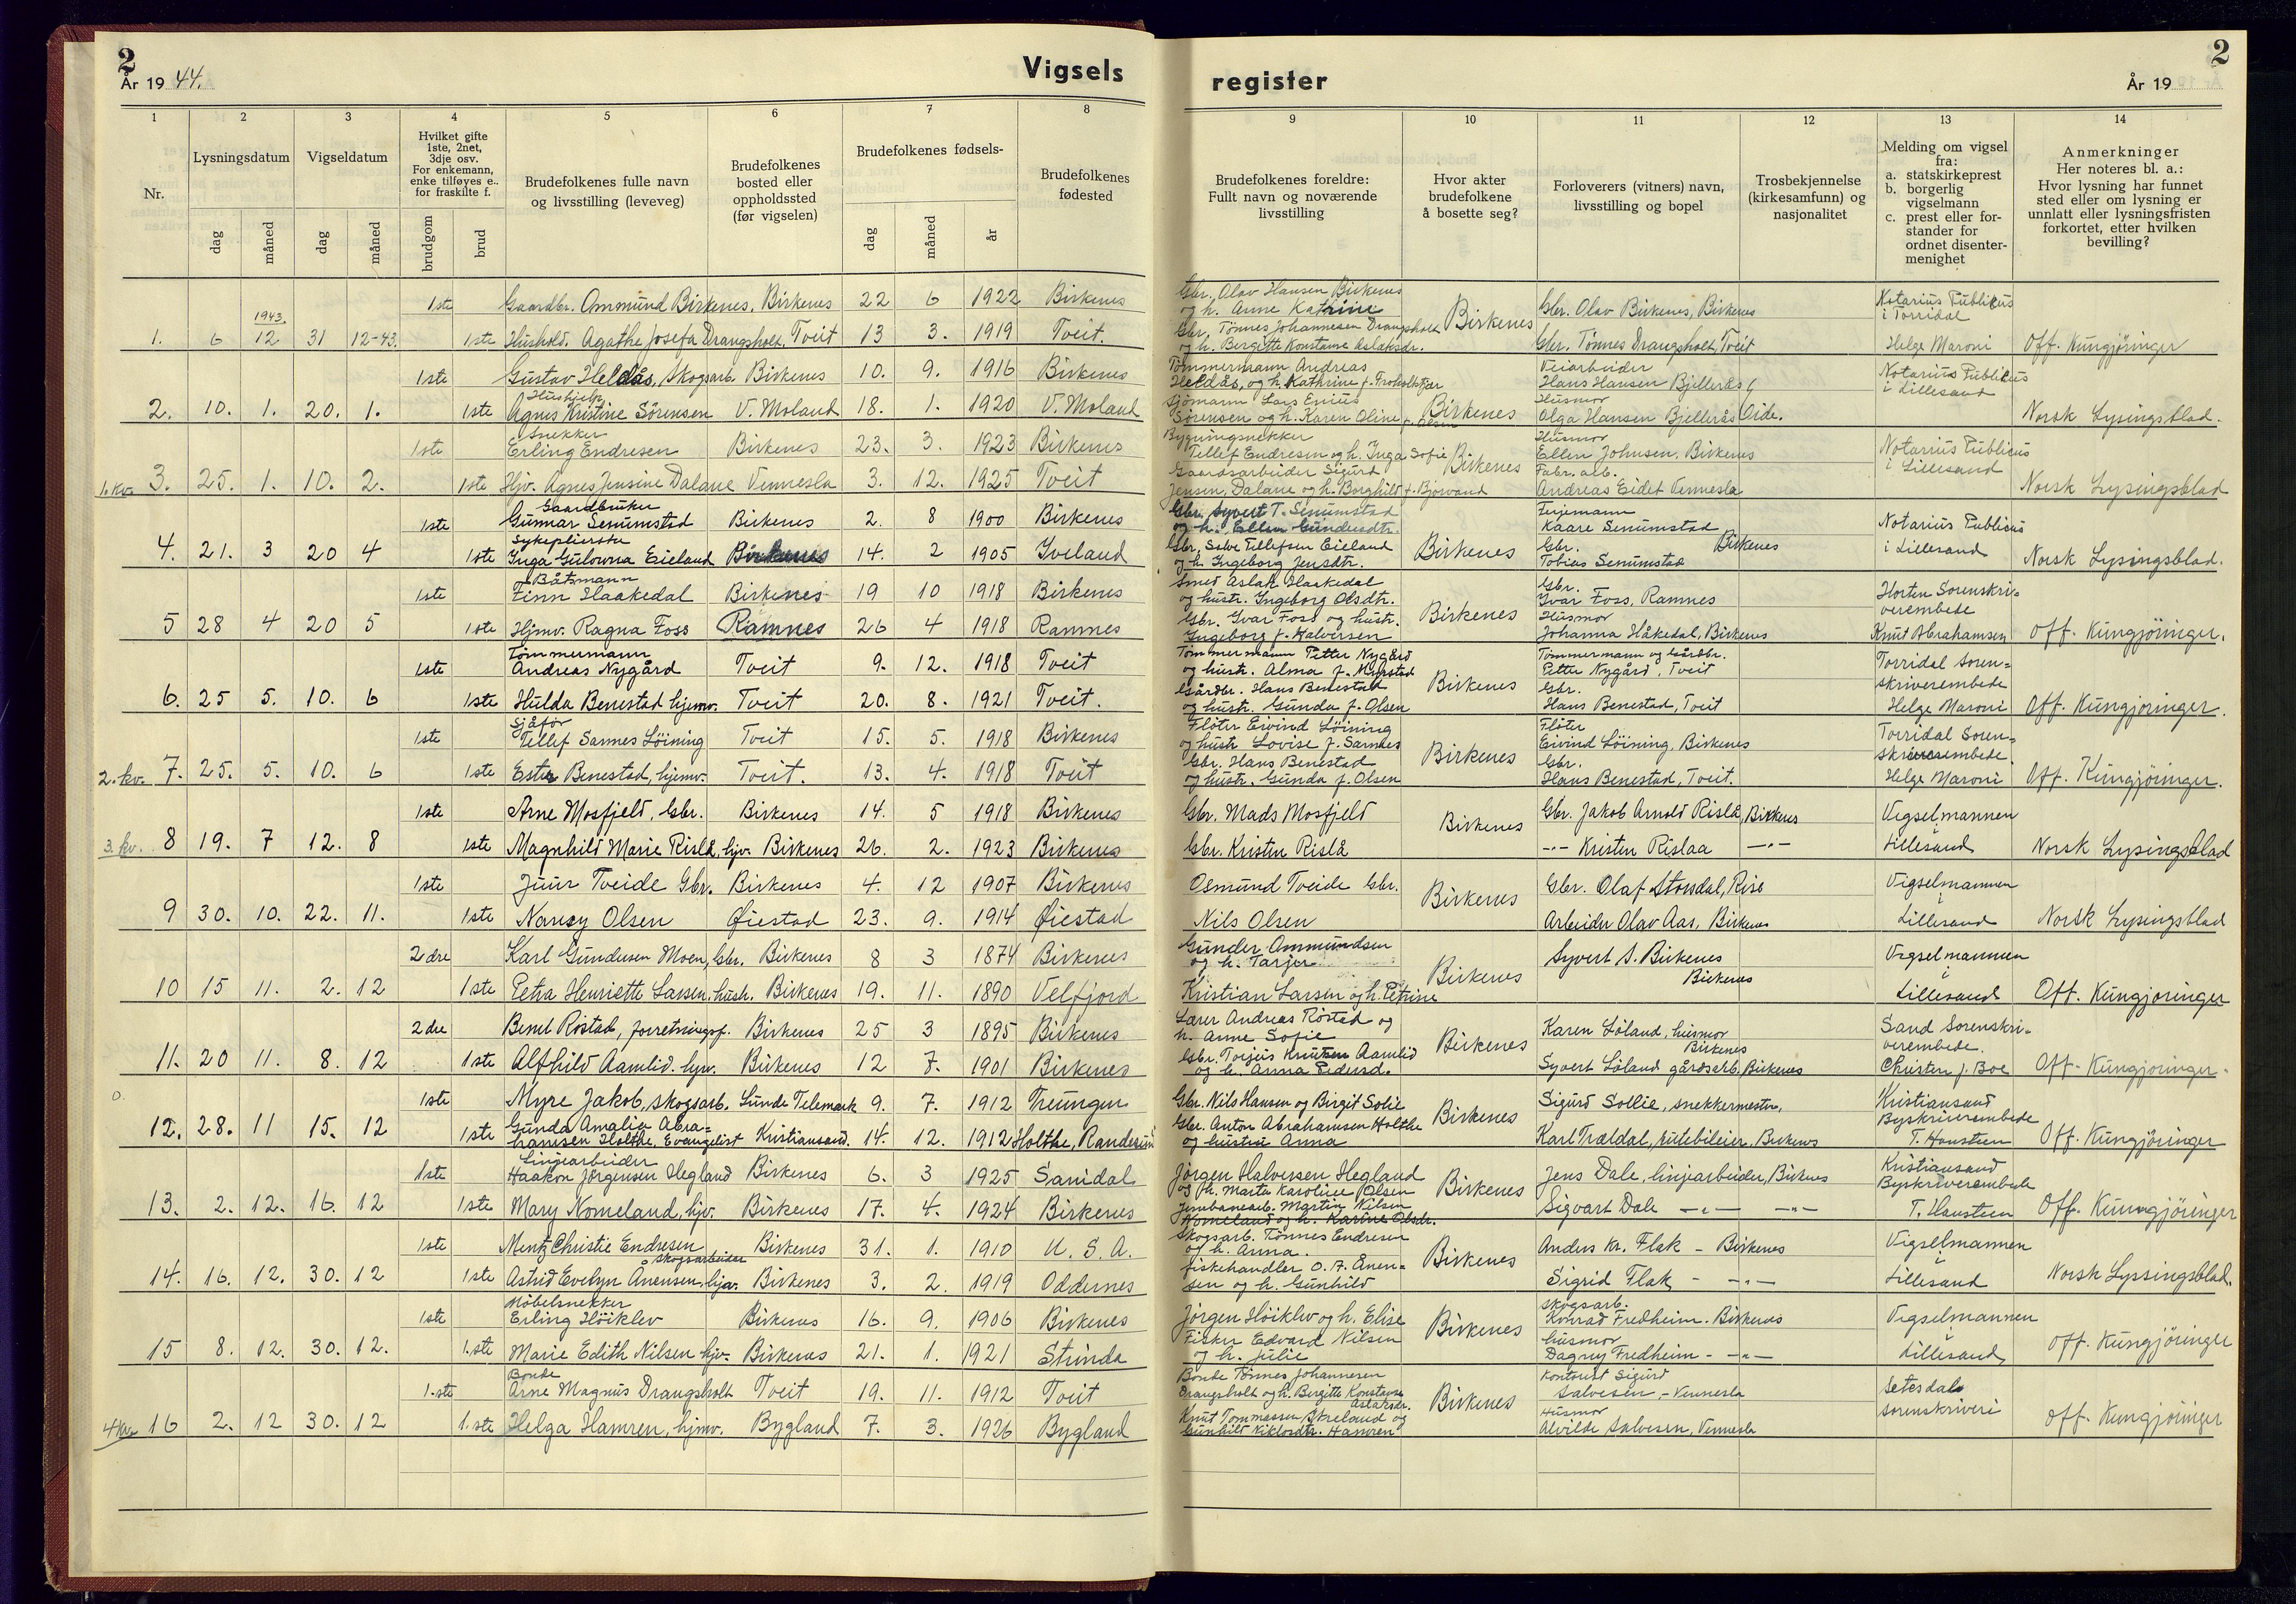 2
År 1944.
Vigsels
register
2
År 19
1 2 3 4 5 6 7 8 9 10 11 12 13 14
Nr.
Lysningsdatum
dag måned
Vigseldatum
dag måned
Hvilket gifte
1ste, 2net,
3dje osv.
For enkemann,
enke tilføyes e..
for fraskilte f.
brudgom brud
Brudefolkenes fulle navn
og livsstilling (leveveg)
Brudefolkenes
bosted eller
oppholdssted
(før vigselen)
Brudefolkenes fødsels-
dag måned år
Brudefolkenes
fødested
Brudefolkenes foreldre:
Fullt navn og noværende
livsstilling
Hvor akter
brudefolkene
å bosette seg?
Forloverers (vitners) navn,
livsstilling og bopel
Trosbekjennelse
(kirkesamfunn) og
nasjonalitet
Melding om vigsel
fra:
a. statskirkeprest
b. borgerlig
vigselmann
c. prest eller for-
stander for
ordnet disenter-
menighet
Anmerkninger
Her noteres bl. a.:
Hvor lysning har funnet
sted eller om lysning er
unnlatt eller lysningsfristen
forkortet, etter hvilken
bevilling?
1ste Gaardbr. Ommund Birkenes, Birkenes 22 6 1922 Birkenes
1943
1. 6 12 31 12-43. 1ste Hushold. Agathe Josefa Drangsholt, Tveit 13 3. 1919 Tveit.
Gbr. Olav Hansen Birkenes
og h. Anne Katrine
Gbr. Tønnes Johannesen Drangsholt
og h. Bergitte Konstanse Aslaksdr.
Birkenes
Gbr. Olav Birkenes, Birkenes
Gbr. Tønnes Drangsholt, Tveit
Notarius Publicus
i Torridal
Helge Maroni
Off. Kungjöringer
1ste Gustav Heldås, Skogsarb. Birkenes 10. 9. 1916 Birkenes
Hushjelp
2. 10. 1. 20. 1. 1ste Agnes Kristine Sörensen V. Moland 18. 1. 1920 V. Moland
Tömmermann Andreas
Heldås, og h. Kathrine f. Froholtfjær
Sjömann Lars Enius
Sörensen og h. Karen Oline f. Olsen
Birkenes
Veiarbeider
Hans Hansen Bjellerås
Husmor
Olga Hansen Bjellerås Eide.
Notarius Publicus
i Lillesand
Norsk Lysingsblad.
Snekker
1ste Erling Endresen Birkenes 23. 3. 1923 Birkenes
1. kv. 3. 25. 1. 10. 2. 1ste Hjv. Agnes Jensine Dalane Vennesla 3. 12. 1925 Tveit
Bygningsnekker
Tellef Endresen og h. Inga Sofie
Gaardsarbeider Sigurd
Jensen, Dalane og h. Borghild f. Bjorvand
Birkenes
Husmor
Ellen Johnsen, Birkenes
Fabr. arb.
Andreas Eidet Vennesla
Notarius Publicus
i Lillesand
Norsk Lysingsblad
Gaardbruker
1ste Gunnar Senumstad Birkenes 2. 8 1900 Birkenes
Sykepleierske
4. 21. 3 20 4 1ste Inga Gulovna Eieland Birkenes 14. 2 1905 Iveland
Gbr. Syvert T. Senumstad
og h. Ellen Gundersdtr.
Gbr. Salve Tellefsen Eieland
og h. Ingeborg Jensdtr.
Birkenes
Kaare Senumstad
Gbr. Birkenes
Tobias Senumstad
Notarius Publicus
i Lillesand
Norsk Lysingsblad.
Båtsmann
1ste Finn Haakedal Birkenes 19 10 1918 Birkenes
5 28 4 20 5 1ste Hjmv. Ragna Foss Ramnes 26 4 1918 Ramnes
Smed Aslak Haakedal
og hustr. Ingeborg Olsdtr.
Gbr. Ivar Foss og hustr.
Ingeborg f. Halvorsen
Birkenes
Gbr.
Ivar Foss, Ramnes
Husmor
Johanna Håkedal, Birkenes
Horten Sorenskri-
verembede
Knut Abrahamsen
Off. Kungjöringer.
Tömmermann
1ste Andreas Nygård Tveit 9. 12. 1918 Tveit
6. 25 5. 10. 6 1ste Hulda Benestad hjemv. Tveit 20. 8. 1921 Tveit.
Tömmermann Petter Nygård
og hustr. Alma f. Myrstad
Gårdbr. Hans Benestad
og hustr. Gunda f. Olsen
Birkenes
Tömmermann og Gårdbr.
Petter Nygård, Tveit
Gbr.
Hans Benestad, Tveit
Torridal Soren-
skriverembede
Helge Maroni
Off. Kungjöringer.
Sjåfør
1ste Tellef Sannes Löining Tveit 15. 5. 1918 Birkenes
2. kv. 7. 25. 5. 10. 6 1ste Ester Benestad, hjemv. Tveit. 13. 4. 1918 Tveit
Flöter Eivind Löining
og hustr Lovise f. Sannes
Gbr. Hans Benestad
og hustr. Gunda f. Olsen
Birkenes
Flöter
Eivind Löining, Birkenes
Gbr.
Hans Benestad, Tveit.
Torridal Soren-
skriverembede.
Helge Maroni
Off. Kungjöringer.
1ste Arne Mosfjeld, Gbr. Birkenes 14. 5 1918 Birkenes
3. kv. 8 19. 7 12. 8 1ste Magnhild Marie Rislå, hjv. Birkenes 26. 2. 1923 Birkenes
Gbr. Mads Mosfjeld
Gbr. Kristen Rislå
Birkenes
Gbr. Jakob Arnold Rislå, Birkenes
-"- Kristen Rislaa -"-
Vigselmannen
i
Lillesand
Norsk Lysingsblad
1ste Juur Tveide Gbr. Birkenes 4. 12 1907 Birkenes
9 30. 10. 22. 11. 1ste Nancy Olsen Øiestad 23. 9. 1914 Øiestad
Osmund Tveide Gbr.
Nils Olsen
Birkenes
Gbr. Olaf Stosdal, Rise
Arbeider Olav Aas, Birkenes
Vigselmannen
i
Lillesand
Norsk Lysingsblad
2dre Karl Gundersen Moen, Gbr. Birkenes 8 3 1874 Birkenes
10 15 11. 2. 12 1ste Petra Henriette Larsen, hush. Birkenes 19. 11. 1890 Velfjord
Gunder Ommundsen
og h. Tarjer
Kristian Larsen og h. Petrine
Birkenes
Syvert S. Birkenes
Birkenes
Vigselmannen
i
Lillesand
Off. Kungjöringer
2dre Bernt Röstad, forretningsf. Birkenes 25 3 1895 Birkenes
11. 20 11. 8. 12 1ste Alfhild Aamlid. hjv. Birkenes 12 7. 1901 Birkenes
Lærer Andreas Röstad og
h. Anne Sofie
Gbr. Torjus Knutsen Aamlid
og h. Anna Pedersd.
Birkenes
Karen Löland, husmor
Birkenes
Syvert Löland gårdsarb, Birkenes
Sand Sorenskri-
verembede.
Christen J. Boe
Off. Kungjöringer.
1ste Myre Jakob, skogsarb. Lunde Telemark 9. 7. 1912 Treungen
12. 28. 11 15. 12 1ste Gunda Amalie Abra-
hamsen Holthe, Evangelist Kristiansand. 14. 12. 1912 Holthe, Randesund
Gbr. Nils Hansen og Birgit Solie
Gbr. Anton Abrahamsen Holthe
og hustru Anna
Birkenes
Sigurd Sollie, snekkermester,
Karl Trældal, rutebileier, Birkenes
Kristiansand
Byskriverembede
T. Haustun
Off. Kungjöringer
Linjearbeider
1ste Haakon Jörgensen Hegland Birkenes 6. 3 1925 Sanidal
13. 2. 12. 16. 12 1ste Mary Nomeland, hjv. Birkenes 17. 4. 1924 Birkenes
Jörgen Halversen Hegland
og h. Marta Karoline Olsen
Jernbanearb. Martin Nilsen
Nomeland og h. Karine Olsdr.
Birkenes
Jens Dale, linjearbeider, Birkenes
Sigvart Dale -"- -"-
Kristiansand
Byskriverembede
T. Haustun
Off. Kunngjöringer
1ste Mentz Christie Endresen Birkenes 31. 1. 1910 U.S.A.
skogsarbeider
14. 16. 12. 30. 12 1ste Astrid Evelyn Ånensen, hjv. Birkenes 3. 2. 1919 Oddernes
Skogsarb. Tönnes Endresen
og h. Anna.
fiskehandler O. A. Ånen-
sen og h. Gunhild
Birkenes
Anders Kr. Flak - Birkenes
Sigrid Flak - -"-
Vigselmannen
i
Lillesand
Norsk Lyssingsblad.
Möbelsnekker
1ste Erling Höiklev Birkenes 16. 9. 1906 Birkenes
15 8. 12. 30. 12. 1.ste Marie Edith Nilsen hjv. Birkenes 21. 1. 1921 Strinda
Jörgen Höiklev og h. Elise
Fisker Edvard Nilsen
og h. Julie
Birkenes
Skogsarb.
Konrad Fredheim. Birkenes
husmor
Dagny Fredheim - -"-
Vigselmannen
i
Lillesand
Off. Kungjöringer
Bonde
1.ste Arne Magnus Drangsholt Tveit 19. 11. 1912 Tveit
4 kv 16 2. 12 30. 12 1.ste Helga Hamren, hjmv. Bygland 7. 3. 1926 Bygland
Bonde Tönnes Johannesen
Drangsholt og h. Bergitte Konstanse
Aslaksdr.
Knut Tommassen Skreland og
Gunhild Kiklosdtr. Hamren
Birkenes
Kontorist Sigurd
Salvesen - Vennesla
Husmor
Alvilde Salvesen, Vennesla
Setesdals
Sorenskriveri
Off. Kungjöringer